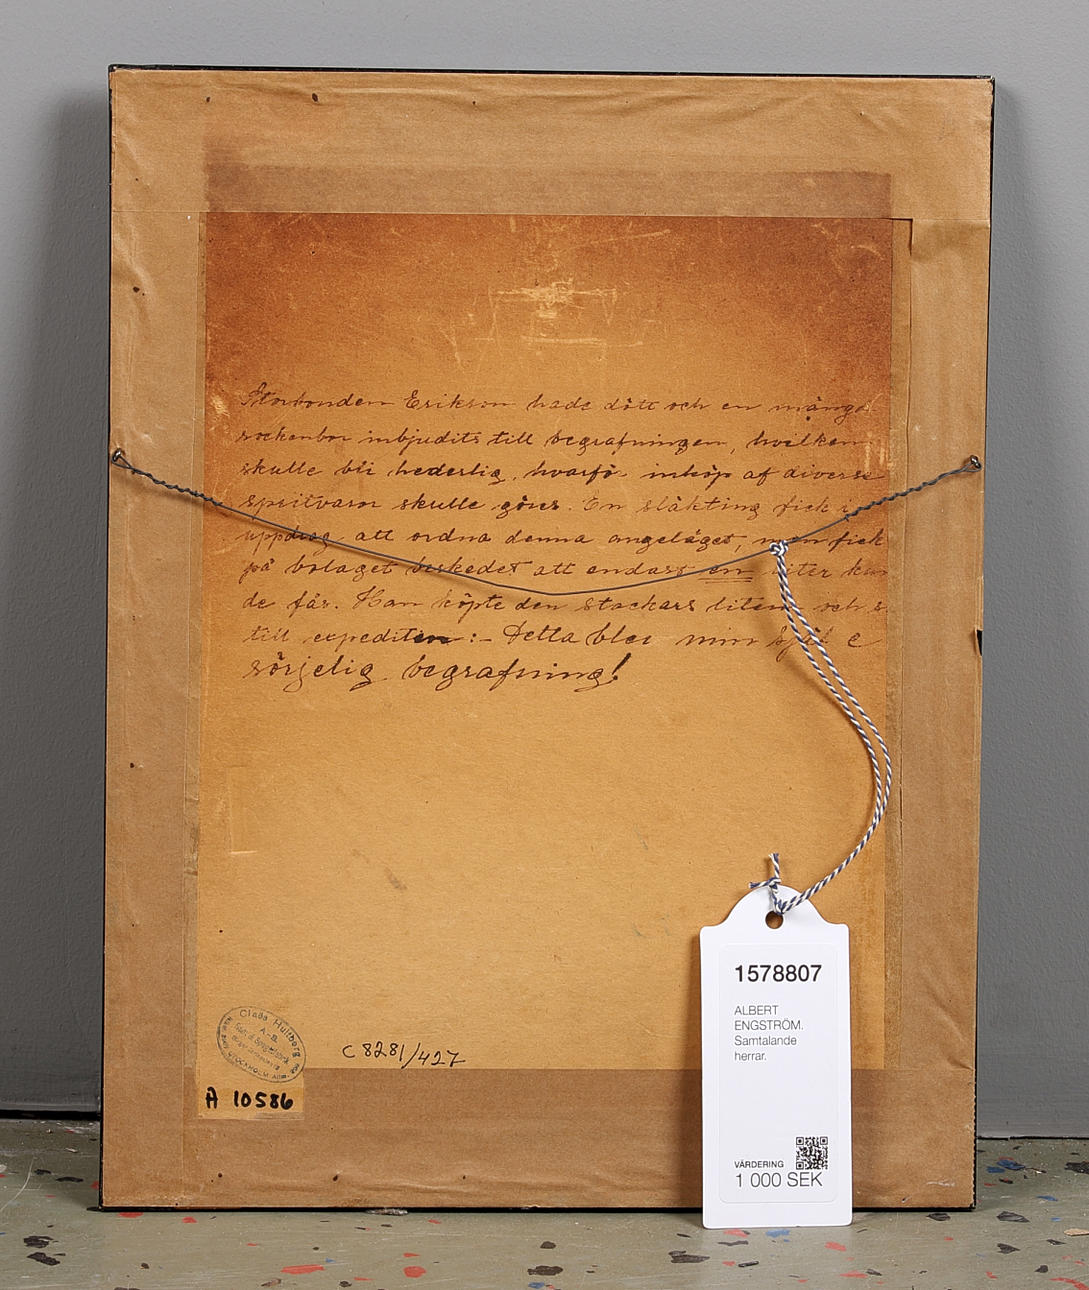 Storbonden Erikson hade dött och en mängd
sockenbor inbjudits till begrafningen, hvilken
skulle bli hederlig, hvarför inköp af diverse
spritvaror skulle göres. En släkting fick i
uppdrag att ordna denna angeläget, men fick
på bolaget beskedet att endast en liter kun
de fås. Han köpte den stackars litern och s
till expediten :- Detta blev min själ e
sörjelig begrafning!
Claës Hultberg
A.-B.
STOCKHOLM
C 8281/427
A 10586
1578807
ALBERT
ENGSTRÖM.
Samtalande
herrar.
VÄRDERING
1 000 SEK